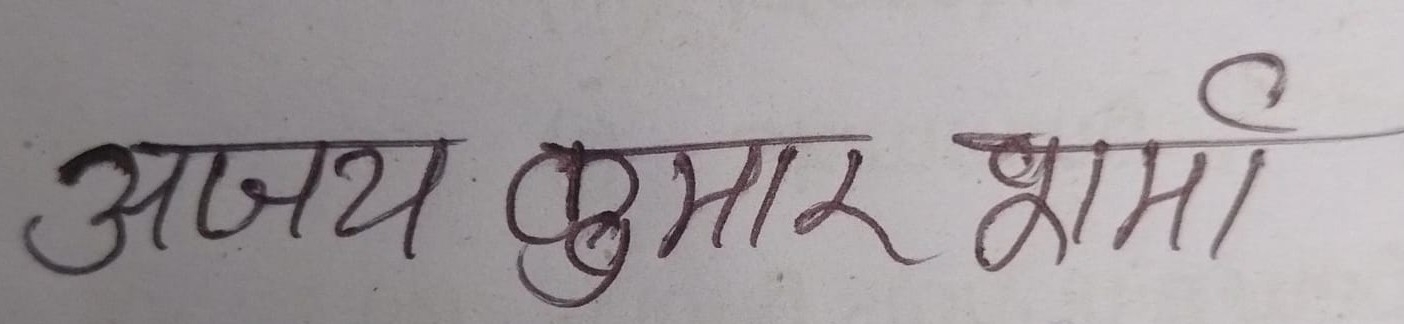 अजय कुमार शर्मा